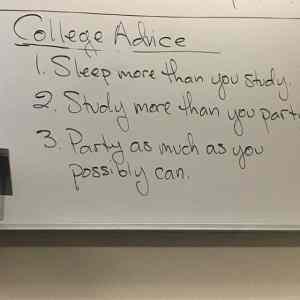 College Advice
1. Sleep more than you study.
2. Study more than you part
3. Party as much as you
possibly can.